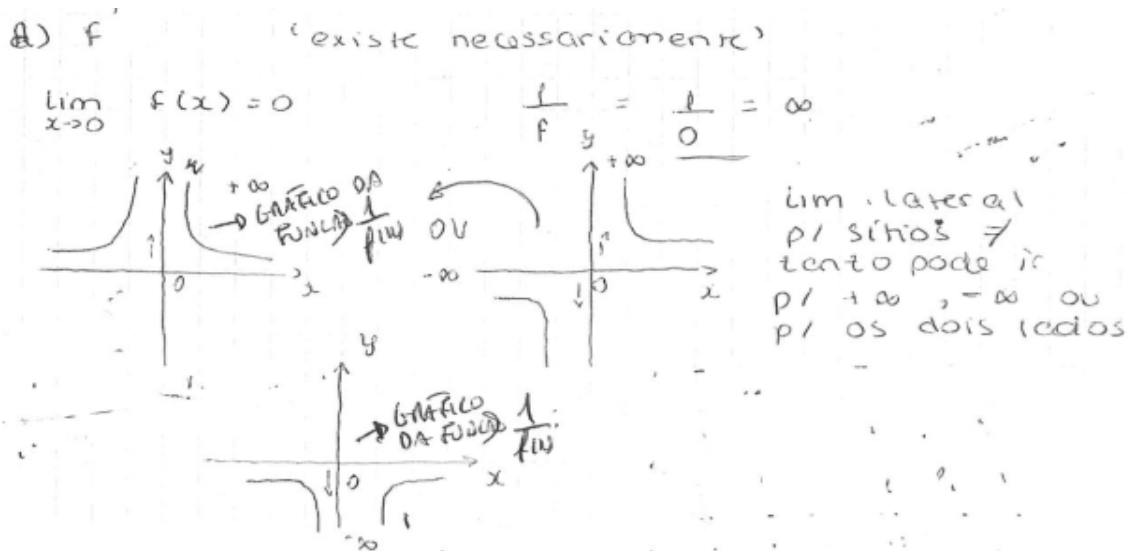 A) F 'existe necessariamente'
lim f(x) = 0
x→0
1/F = 1/0 = ∞
y +∞
→ GRÁFICO DA
FUNÇÃO 1/f(x) OU
0 x
y +∞
-∞ 0 x
lim. lateral
p/ sítios ≠
tanto pode ir
p/ +∞, -∞ ou
p/ os dois lados
y
→ GRÁFICO
DA FUNÇÃO 1/f(x)
0 x
-∞